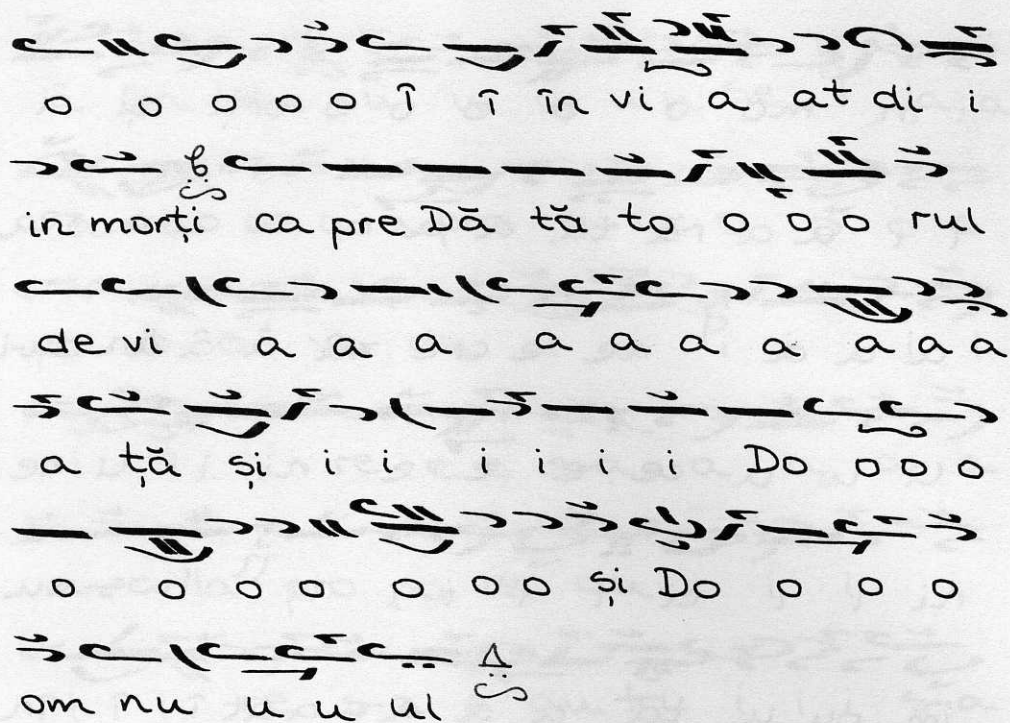 o o o o o î î în vi a at di i
in morți ca pre Dă tă to o o o rul
de vi a a a a a a a a a a
a tă și i i i i i i Do o o o
o o o o o o o și Do o o o
om nu u u ul